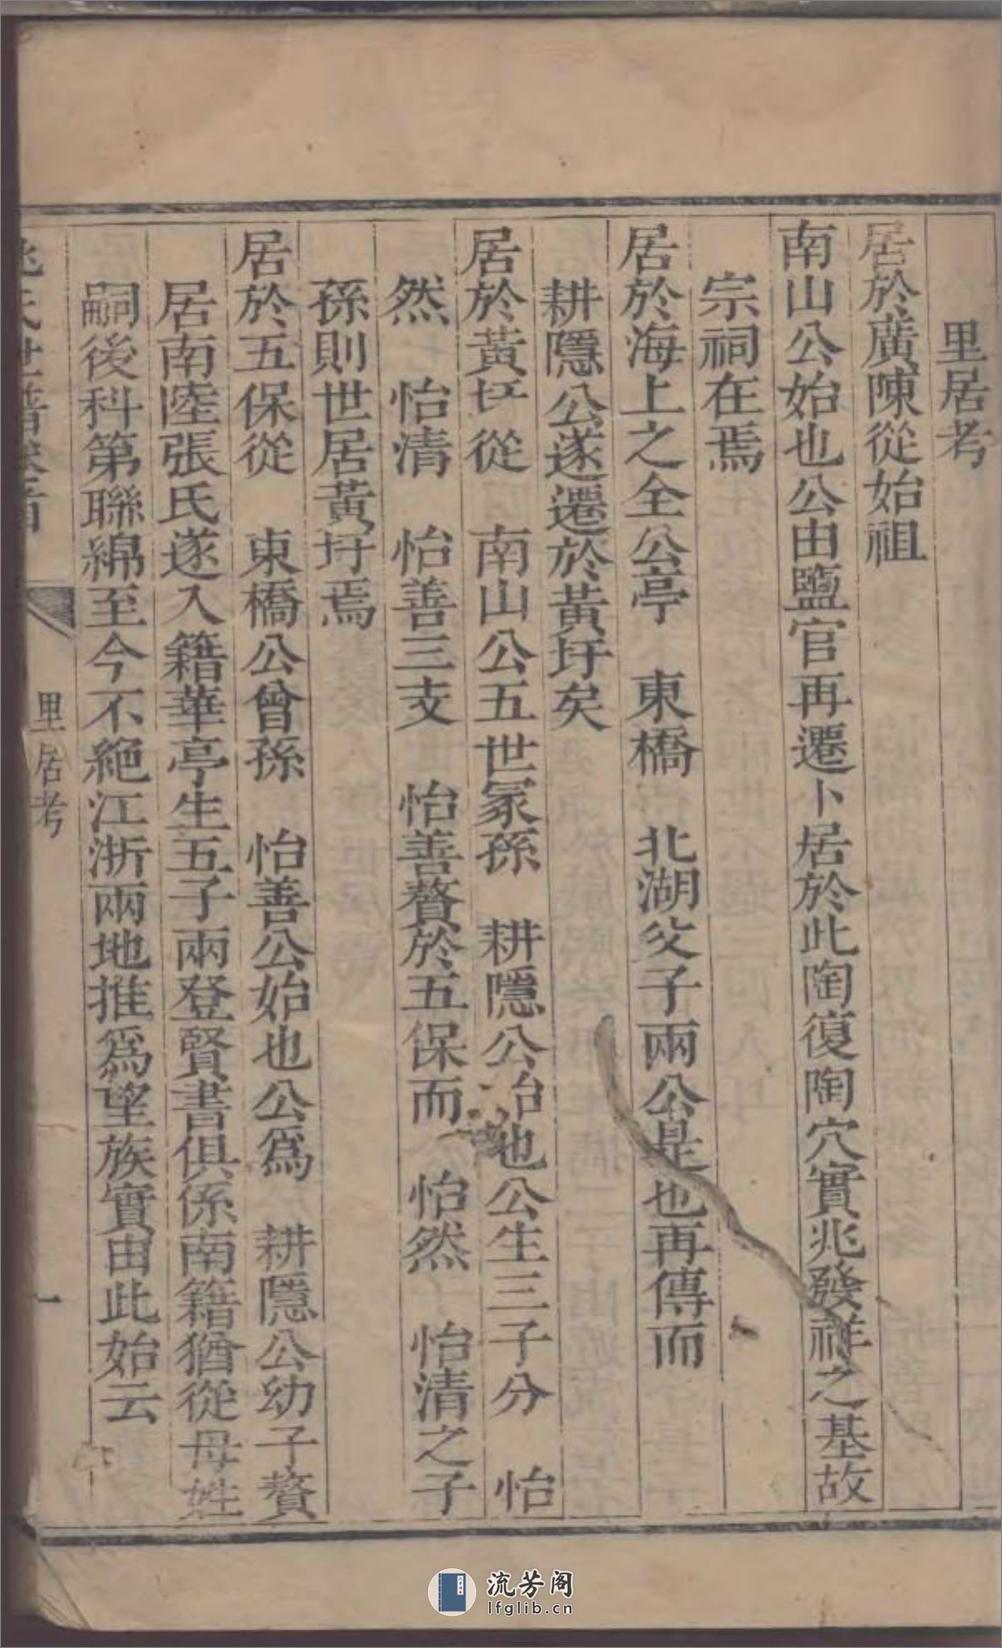 里居考
居於廣陳從始祖
南山公始也公由鹽官再遷卜居於此陶復陶穴實兆發祥之基故
宗祠在焉
居於海上之全公亭 東橋 北湖父子兩公是也再傳而
耕隱公遂遷於黃圩矣
居於黃圩從 南山公五世冢孫 耕隱公始也公生三子分 怡
然 怡清 怡善三支 怡善贅於五保而 怡然 怡清之子
孫則世居黃圩焉
居於五保從 東橋公曾孫 怡善公始也公爲 耕隱公幼子贅
居南陸張氏遂入籍華亭生五子兩登賢書俱係南籍猶從母姓
嗣後科第聯綿至今不絕江浙兩地推爲望族實由此始云
姚氏世譜卷首
里居考
一
流芳阁
lfglib.cn